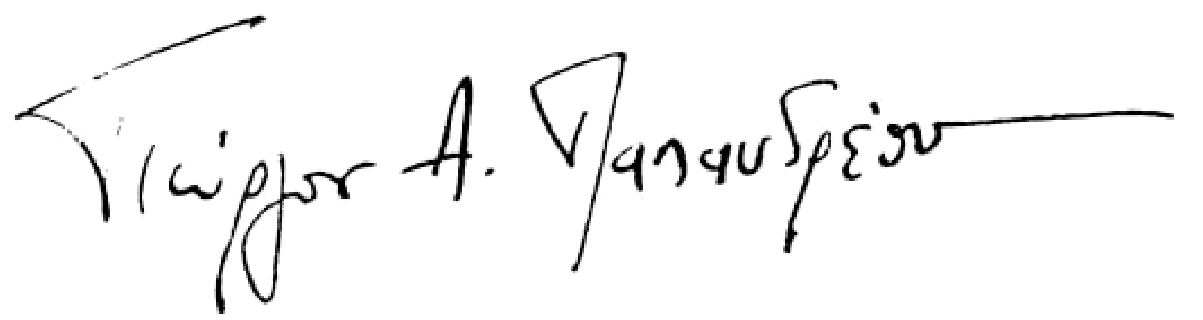 Γιώργος Α. Παπανδρέου